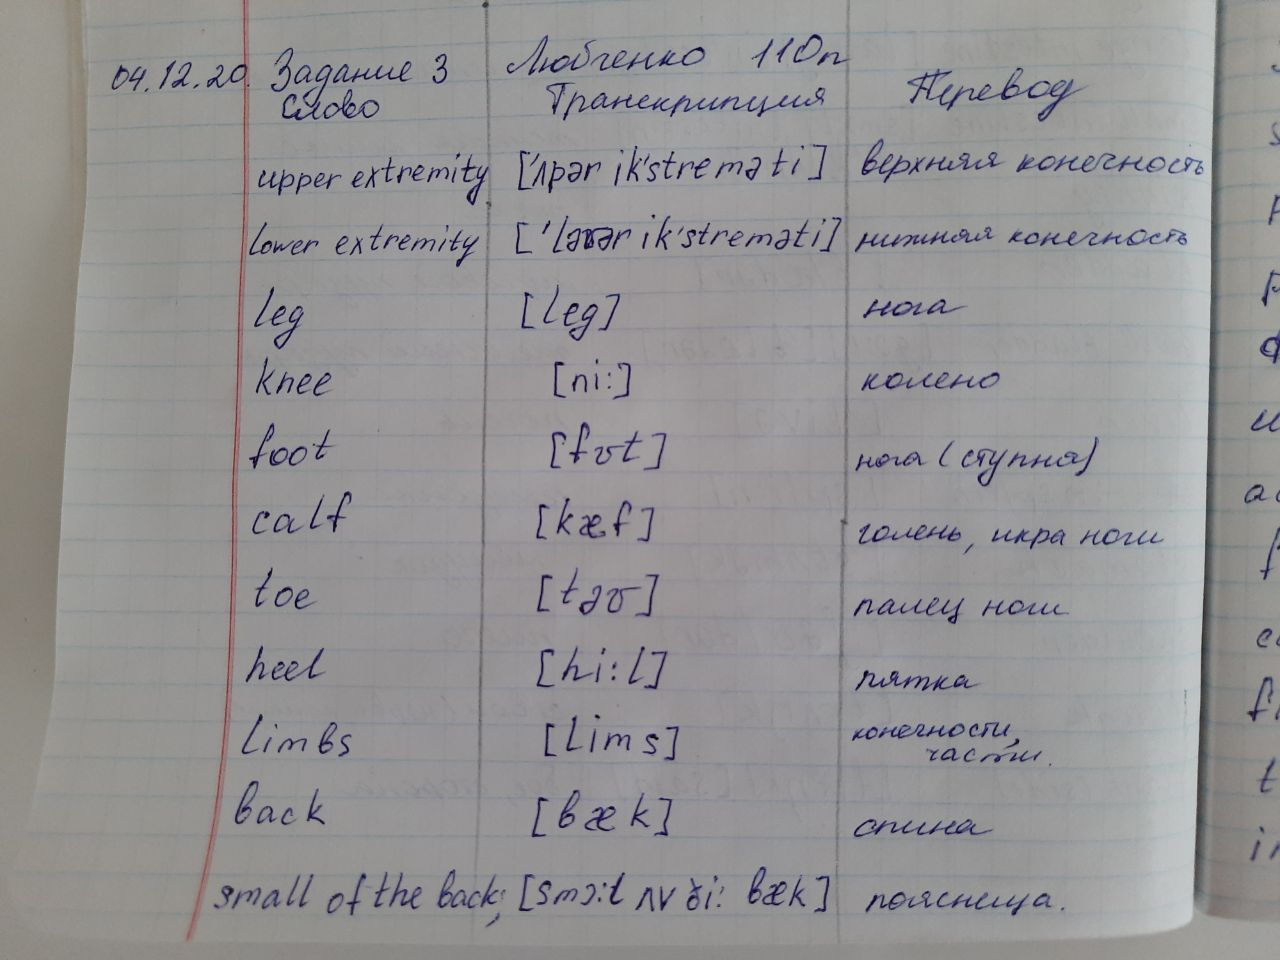 04.12.20. Задание 3 Любченко 11Оп
Слово Транскрипция Перевод
upper extremity ['ʌpər ik'streməti] верхняя конечность
lower extremity ['ləʊər ik'streməti] нижняя конечность
leg [leg] нога
knee [ni:] колено
foot [fʊt] нога (ступня)
calf [kæf] голень, икра ноги
toe [təʊ] палец ноги
heel [hi:l] пятка
limbs [lims] конечности,
части.
back [bæk] спина
small of the back; [smɔ:l ʌv ði: bæk] поясница.